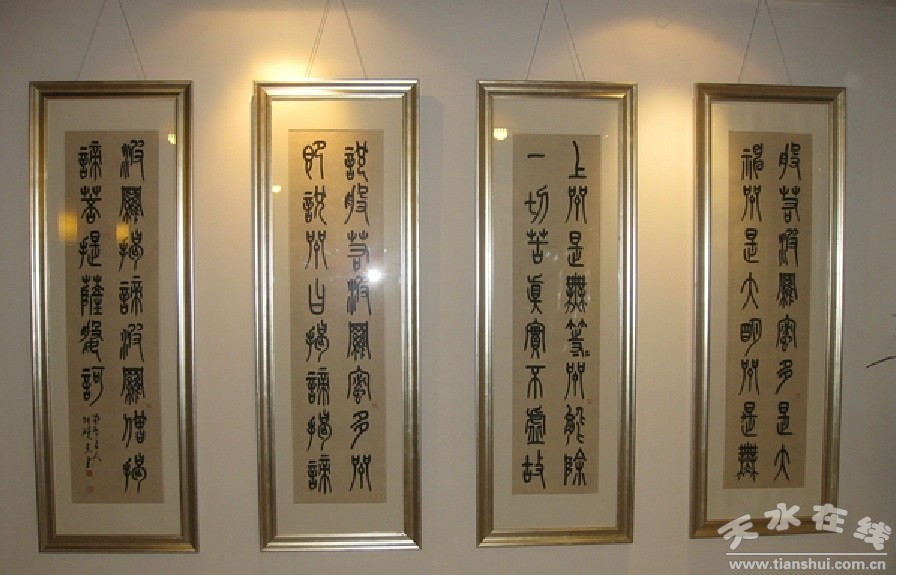 般若波羅蜜多是大
神咒是大明咒是無
上咒是無等〻咒能除
一切苦眞實不虛故
說般若波羅蜜多咒
即說咒曰揭諦揭諦
波羅揭諦波羅僧揭
諦菩提薩婆訶
天水在线
www.tianshui.com.cn